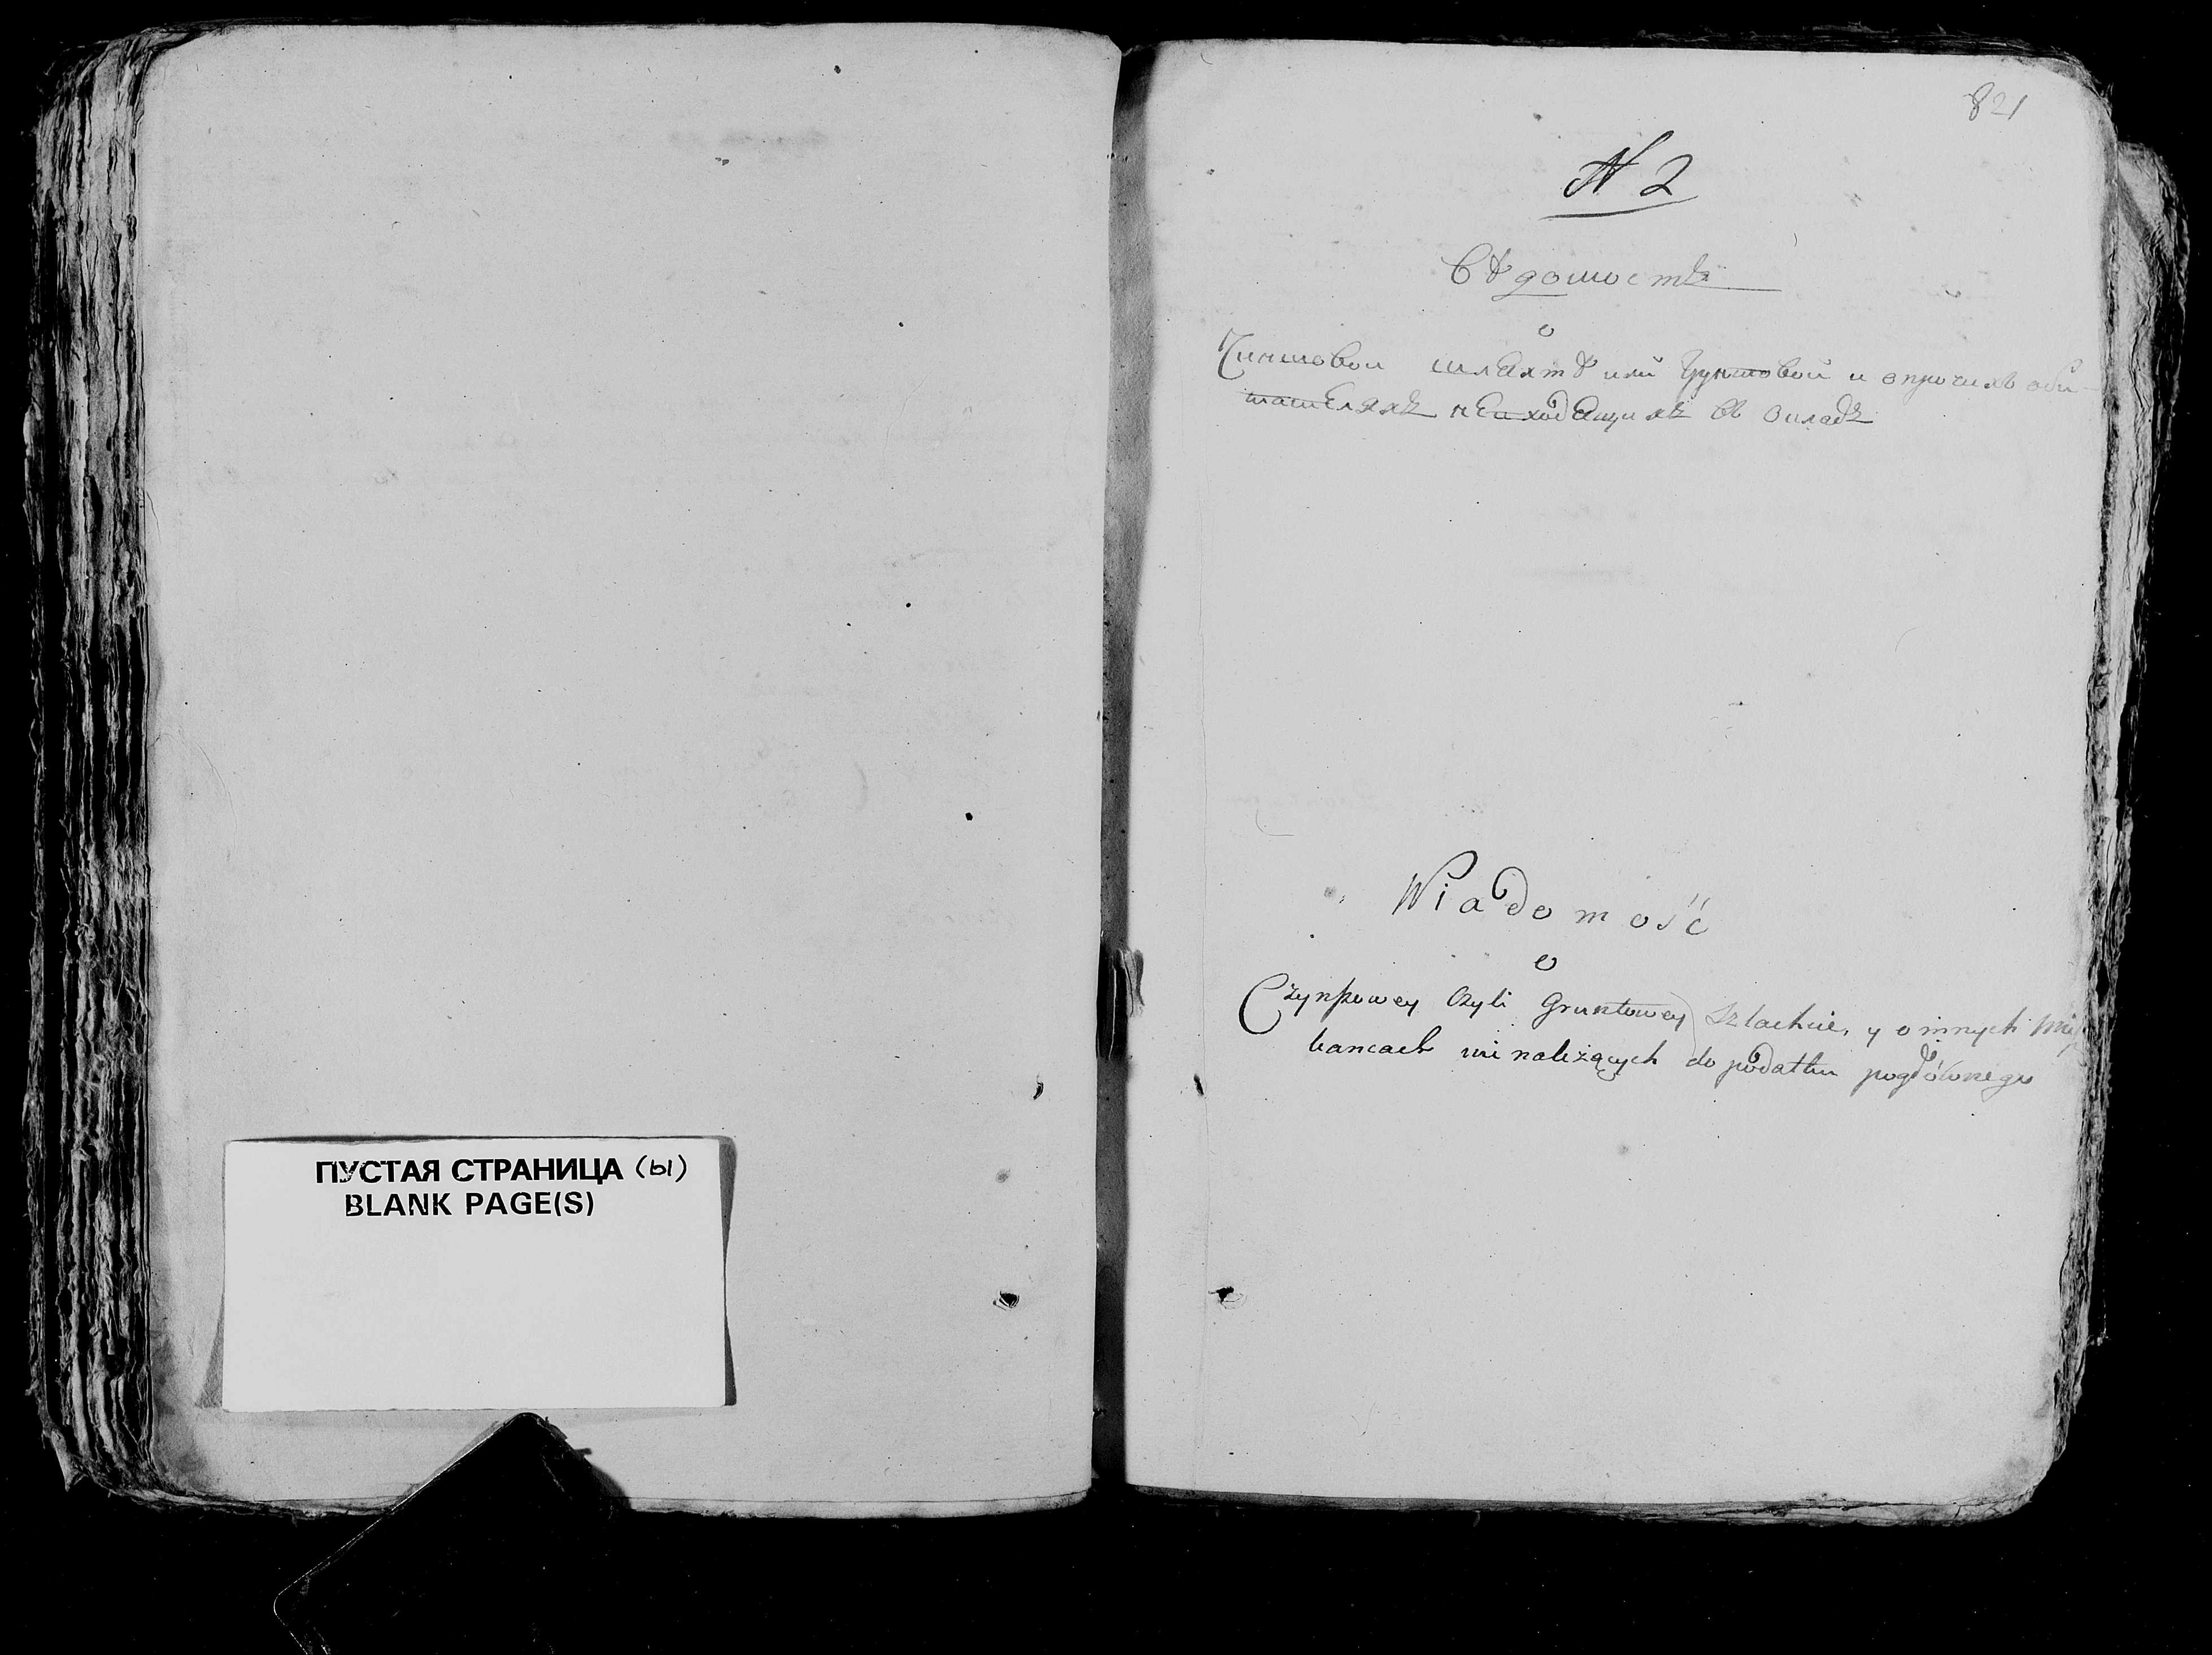 ПУСТАЯ СТРАНИЦА (ы)
BLANK PAGE(S)
821
N 2
Вѣдомость
о
Чиншовой шляхтѣ или грунтовой и опрочихъ оби-
тателяхъ неиходящихъ въ окладѣ
Wiadomość
o
Czynszowey czyli Gruntowey Szlachcie, y o innych miesz
kancach nie należących do podatku pogłównego